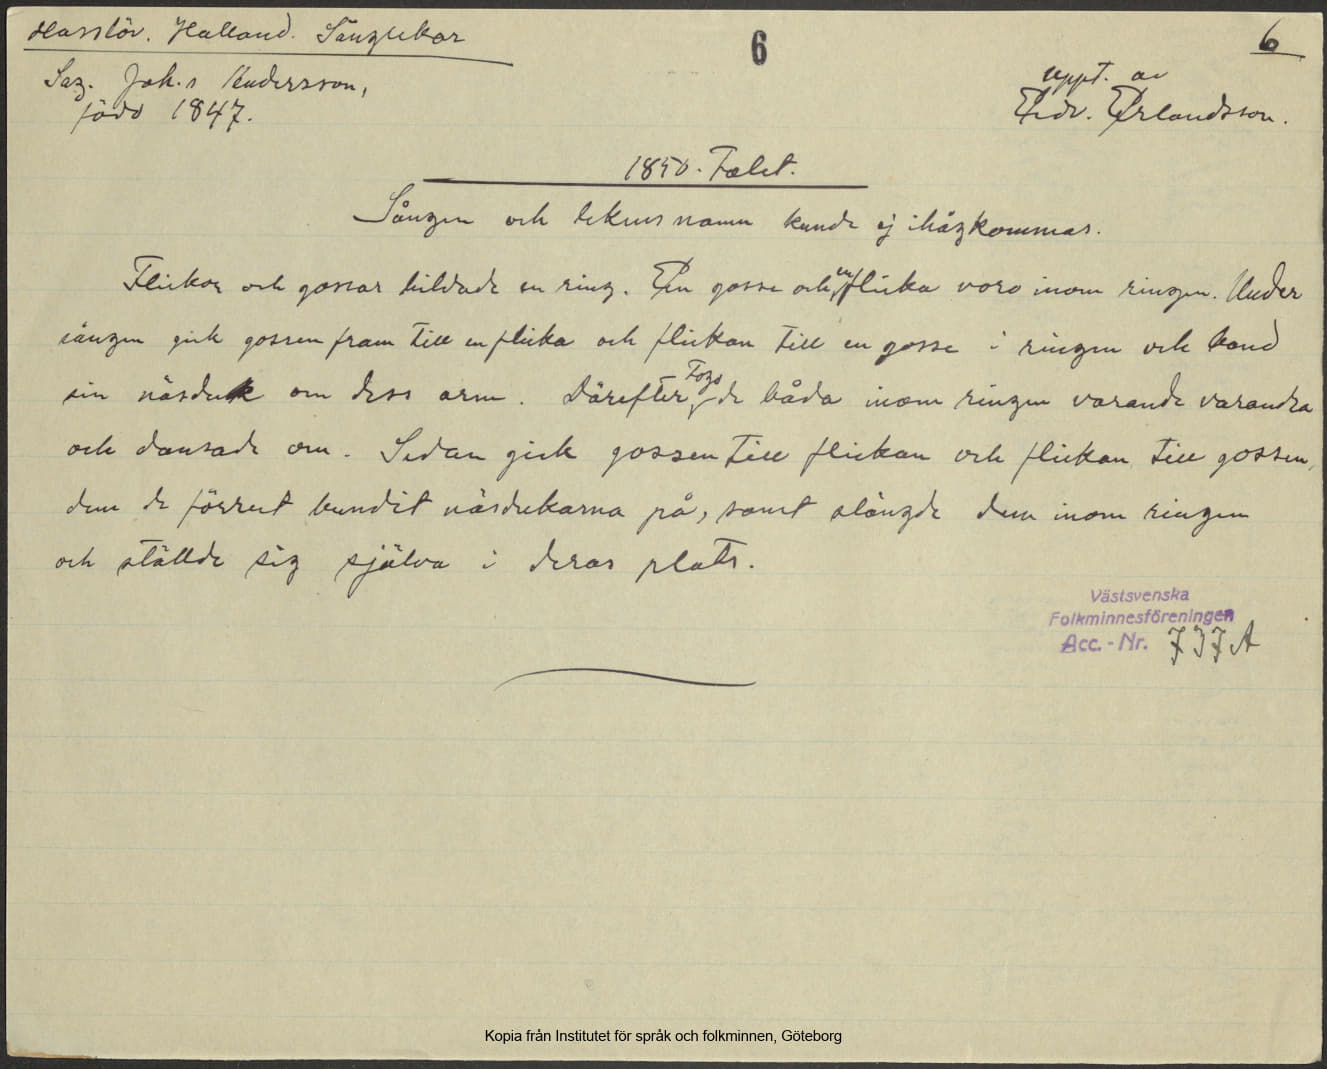 Hasslöv. Halland. Sånglekar
6
6
Sag. Joh.s Andersson,
född 1847.
uppt. av
Edv. Erlandsson.
1850-Talet.
Sången och lekens namn kunde ej ihågkommas.
Flickor och gossar bildade en ring. En gosse och en flicka voro inom ringen. Under
sången gick gossen fram till en flicka och flickan till en gosse i ringen och band
sin näsduk om dess arm. Därefter togo de båda inom ringen varande varandra
och dansade om. Sedan gick gossen till flickan och flickan till gossen,
dem de förrut bundit näsdukarna på, samt slängde dem inom ringen
och ställde sig själva i deras plats.
Västsvenska
Folkminnesföreningen
Acc. - Nr. 737 A
Kopia från Institutet för språk och folkminnen, Göteborg